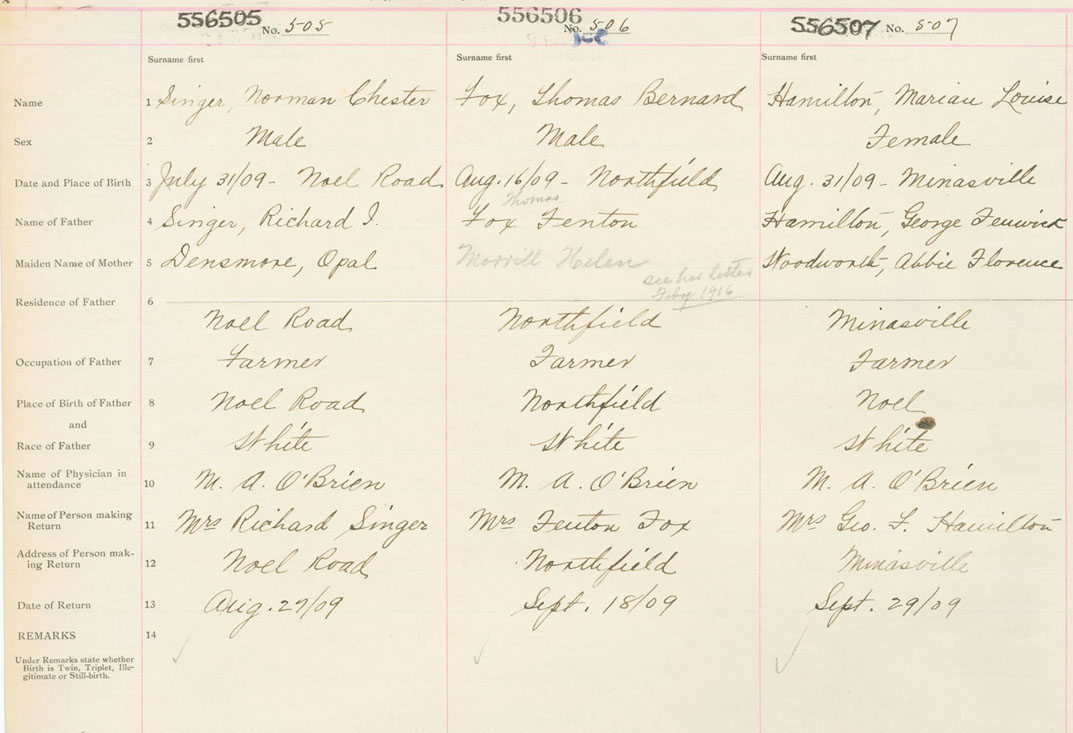 556505 No. 505 556506 No. 506 556507 No. 507
Surname first Surname first Surname first
Name 1 Singer, Norman Chester Fox, Thomas Bernard Hamilton, Marian Louise
Sex 2 Male Male Female
Date and Place of Birth 3 July 31/09 - Noel Road Aug. 16/09 - Northfield Aug. 31/09 - Minasville
Thomas
Name of Father 4 Singer, Richard I. Fox Fenton Hamilton, George Fenwick
Maiden Name of Mother 5 Densmore, Opal Morrill Helen Woodworth, Abbie Florence
see her letter
Feby 1916
Residence of Father 6
Noel Road Northfield Minasville
Occupation of Father 7 Farmer Farmer Farmer
Place of Birth of Father 8 Noel Road Northfield Noel
and
Race of Father 9 White White White
Name of Physician in
attendance 10 M. A. O'Brien M. A. O'Brien M. A. O'Brien
Name of Person making
Return 11 Mrs Richard Singer Mrs Fenton Fox Mrs Geo. F. Hamilton
Address of Person mak-
ing Return 12 Noel Road Northfield Minasville
Date of Return 13 Aug. 27/09 Sept. 18/09 Sept. 29/09
REMARKS 14
Under Remarks state whether
Birth is Twin, Triplet, Ille-
gitimate or Still-birth.